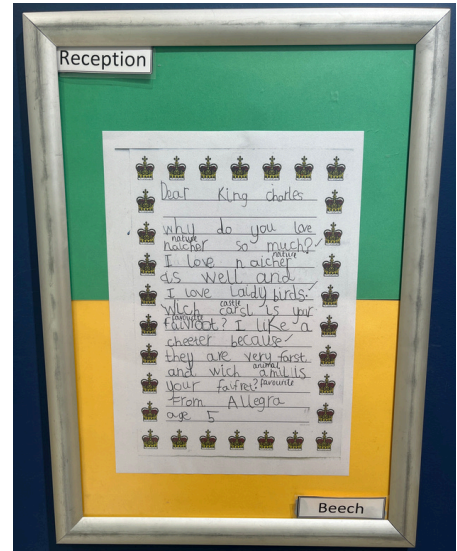 Reception
Dear King charles
why do you love
nature
naicher so much?
nature
I love naicher
as well and
I love laidy birds.
castle
wich carsl is your
favourite
faivroot? I like a
cheeter because
they are very farst.
animal
and wich amillis
favourite
your faifret?
From Allegra
age 5
Beech